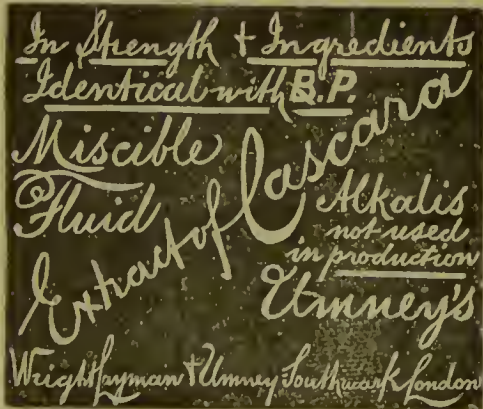 In Strength & Ingredients
Identical with B.P.
Miscible
Fluid
Extract of Cascara
Alkalis
not used
in production
Umney's
Wright Layman & Umney Southwark London